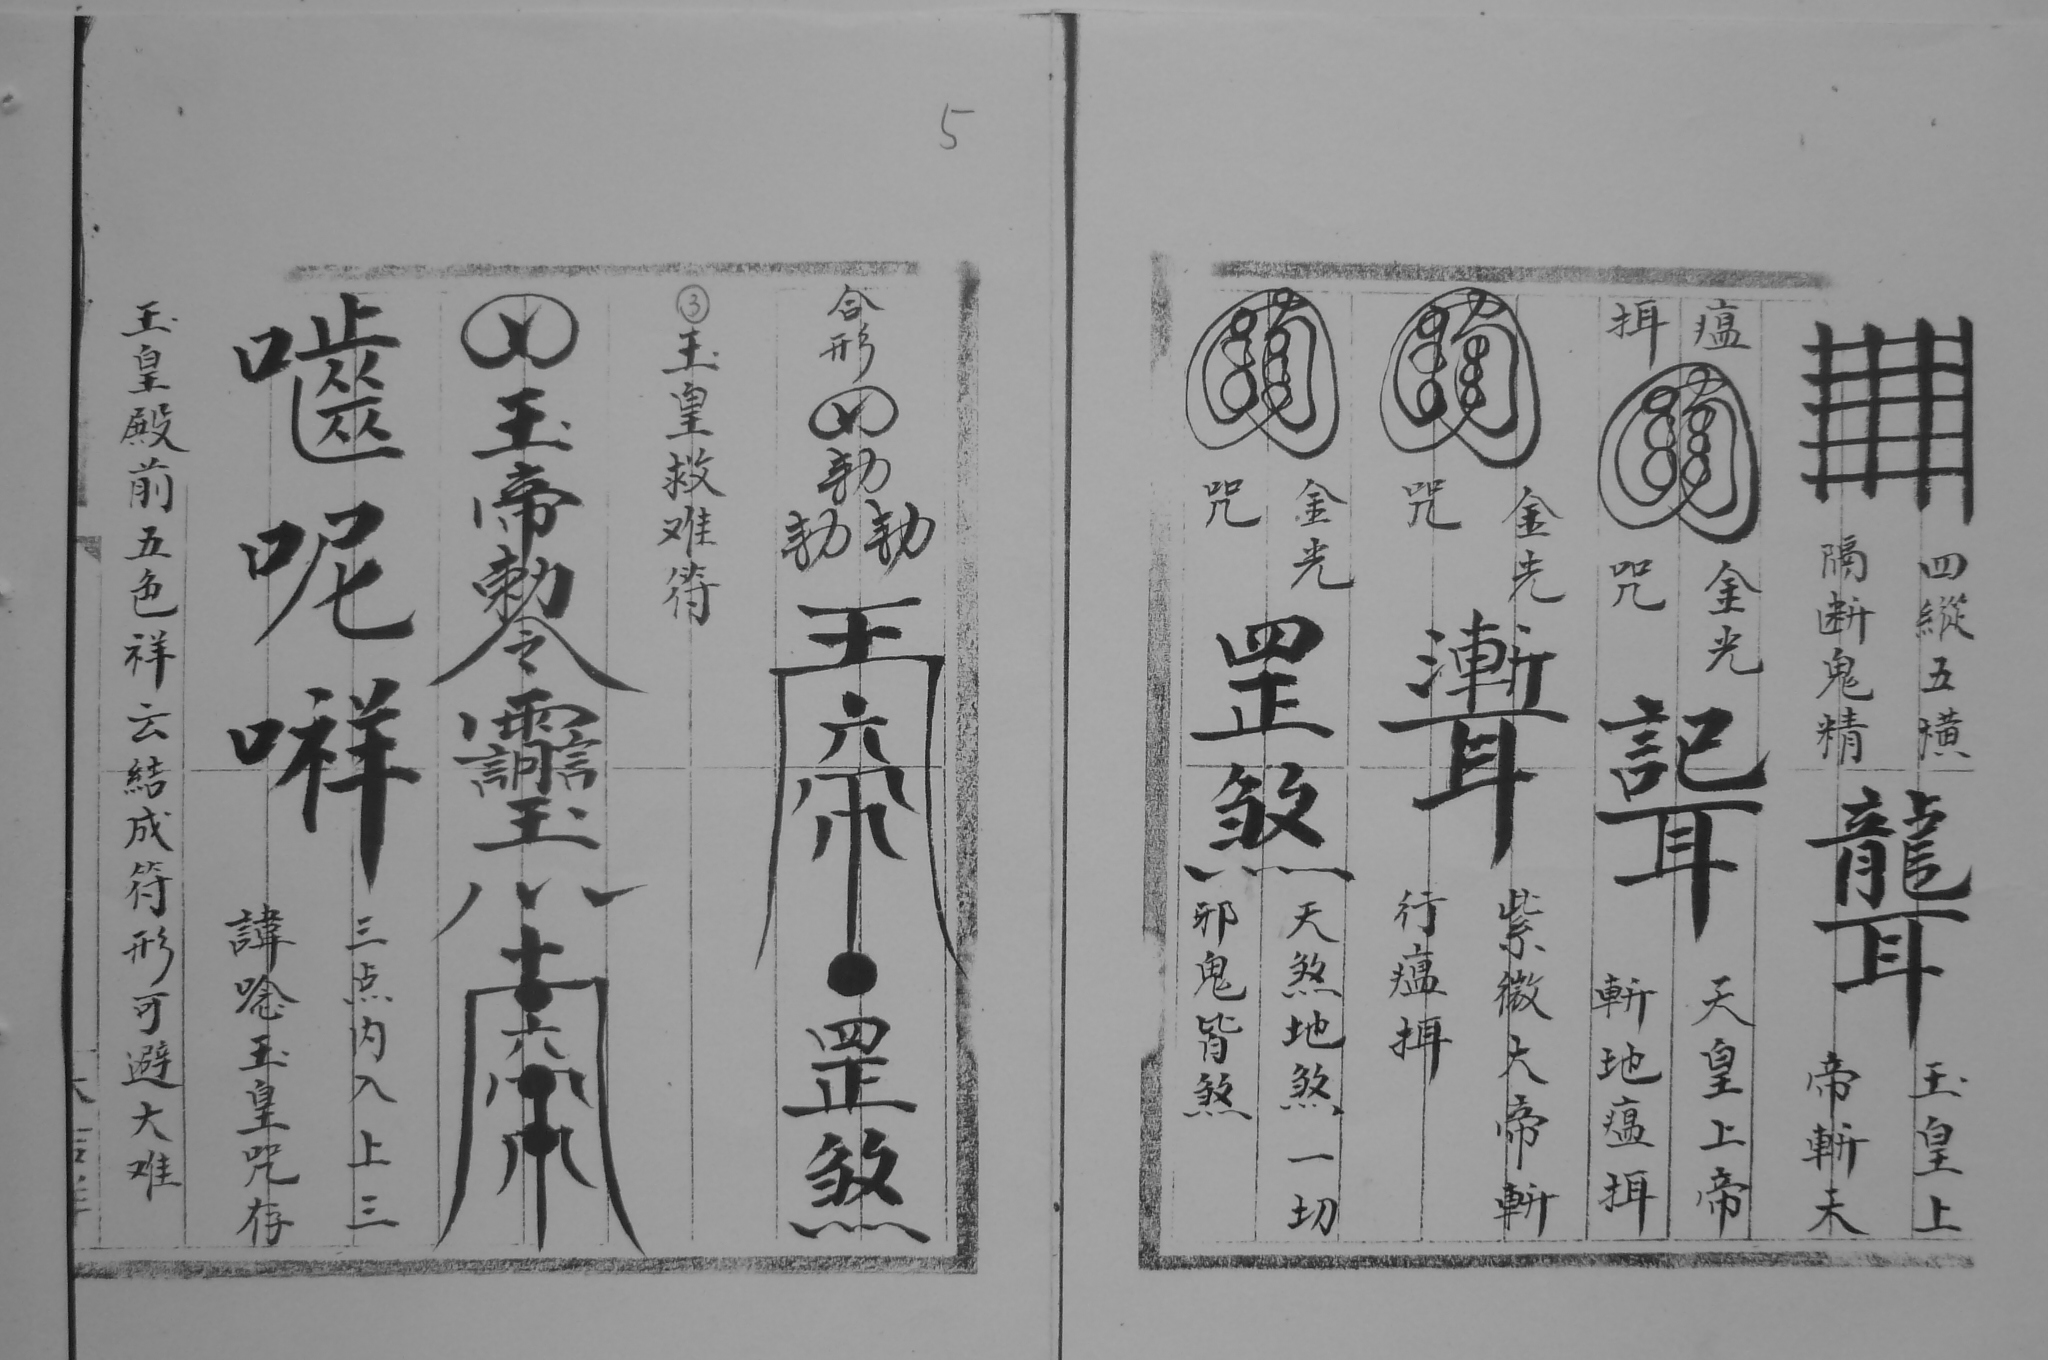 四縱五横
隔断鬼精
玉皇上
帝斬天
瘟
挕
金光
咒
天皇上帝
斬地瘟挕
金光
咒
紫微大帝斬
行瘟挕
金光
咒
罡煞
天煞地煞一切
邪鬼皆煞
5
合形
勅
勅勅
玉
六
罡煞
③玉皇救难符
玉帝勅令
玉
六
嚙呢𠹌
三点内入上三
諱唸玉皇咒存
玉皇殿前五色祥云結成符形可避大难